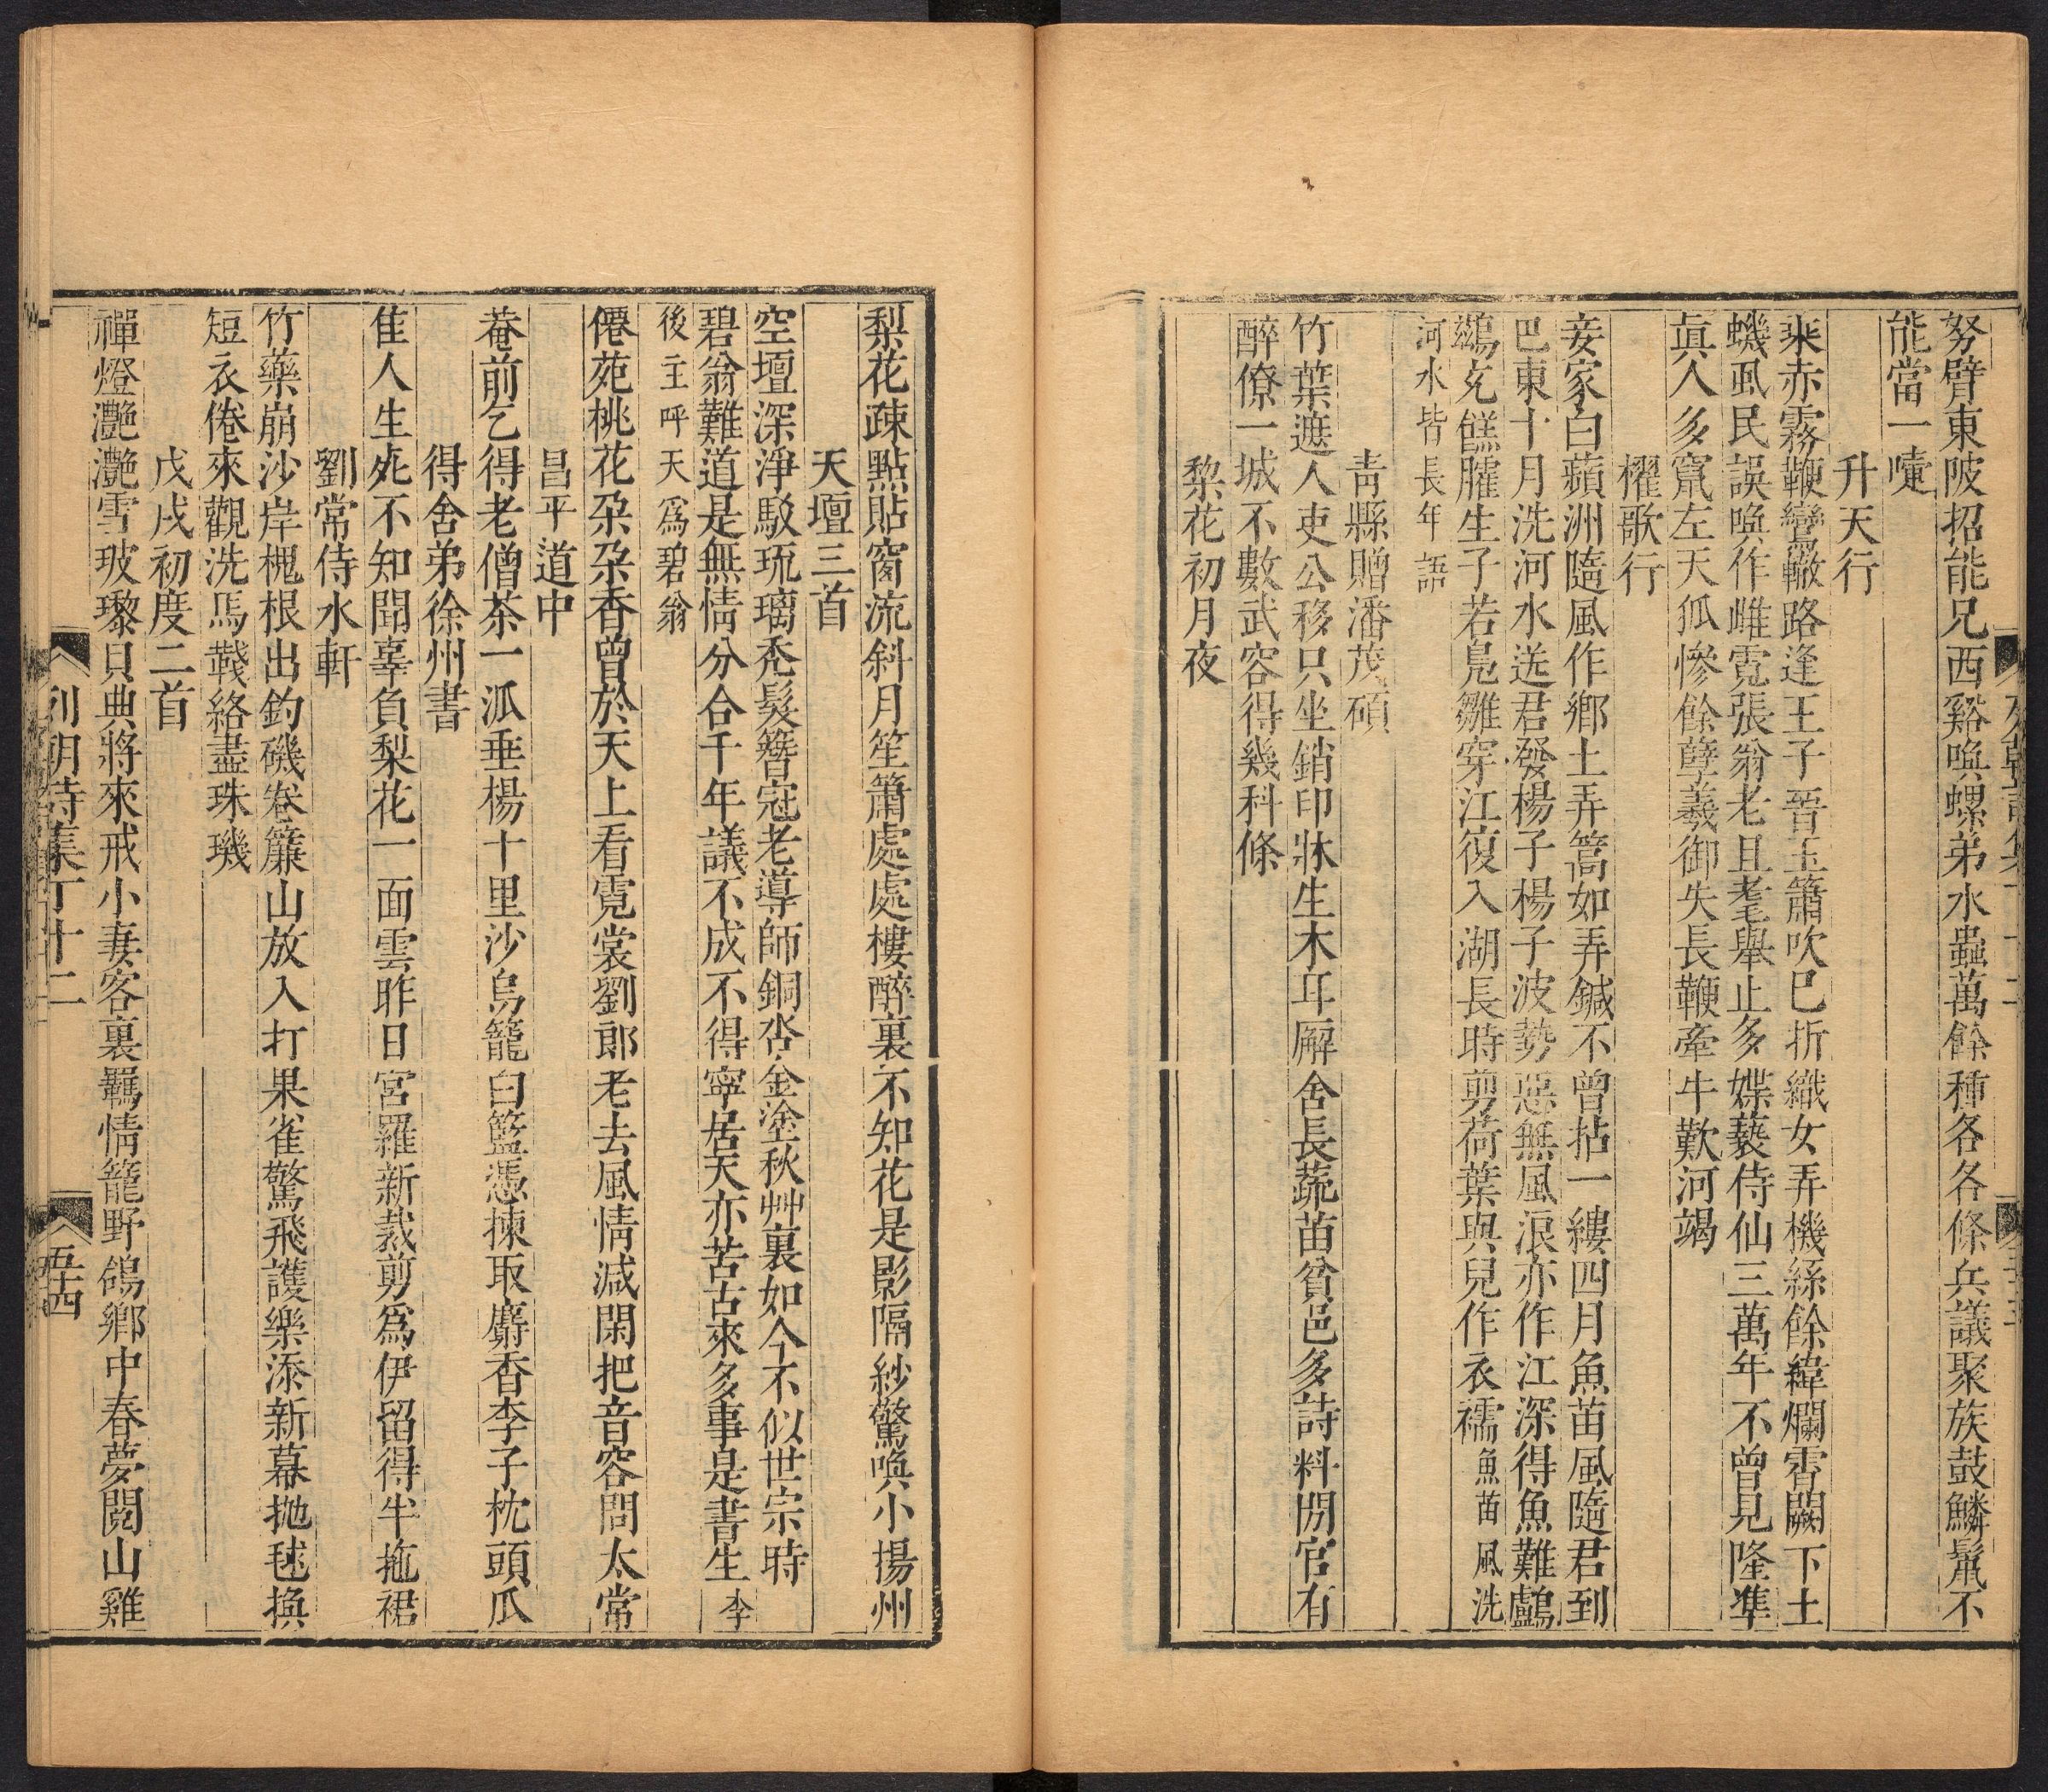 努臂東陂招能兄西谿喚螺弟水蟲萬餘種各各條兵議聚族鼓鱗鬣不
能當一嚏
升天行
乘赤霧鞭鸞轍路逢王子晉玉簫吹巳折織女弄機絲餘緯爛霄闕下土
蟣虱民誤喚作雌霓張翁老且耄舉止多媟褻侍仙三萬年不曾見隆準
眞人多竄左天狐慘餘孽羲御失長鞭牽牛歎河竭
櫂歌行
妾家白蘋洲隨風作鄉土弄篙如弄鍼不曾拈一縷四月魚苗風隨君到
巴東十月洗河水送君發楊子楊子波勢惡無風浪亦作江深得魚難鸕
鷀充饃臛生子若鳧雛穿江復入湖長時剪荷葉與兒作衣襦魚苗風洗
河水皆長年語
靑縣贈潘茂碩
竹葉遮人吏公移只坐銷印牀生木耳廨舍長蔬苗貧邑多詩料閒官有
醉僚一城不數武容得幾科條
黎花初月夜
梨花疎點貼窗流斜月笙簫處處樓醉裏不知花是影隔紗驚喚小揚州
天壇三首
空壇深淨駁琉璃禿髮簪冠老導師銅沓金塗秋艸裏如今不似世宗時
碧翁難道是無情分合千年議不成不得寧居天亦苦古來多事是書生李
後主呼天爲碧翁
僊苑桃花朶朶香曾於天上看霓裳劉郎老去風情減閑把音容問太常
昌平道中
菴前乞得老僧茶一派垂楊十里沙烏籠白籃憑揀取麝香李子枕頭瓜
得舍弟徐州書
隹人生死不知聞辜負梨花一面雲昨日宮羅新裁剪爲伊留得半拖裙
劉常侍水軒
竹藥崩沙岸槐根出釣磯卷簾山放入打果雀驚飛護樂添新幕拋毬換
短衣倦來觀洗馬韉絡盡珠璣
戊戌初度二首
禪燈灩灩雪玻瓈貝典將來戒小妻客裏羈情籠野鴿鄉中春夢閱山雞
列朝詩集丁十二
五十四